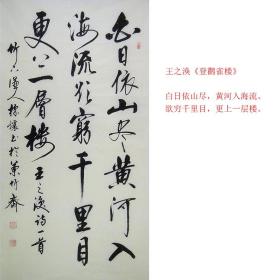 白日依山尽黄河入
海流欲窮千里目
更上一層楼 王之涣诗一首
竹下漁人书於竹斋
王之涣《登鹳雀楼》
白日依山尽，黄河入海流。
欲穷千里目，更上一层楼。